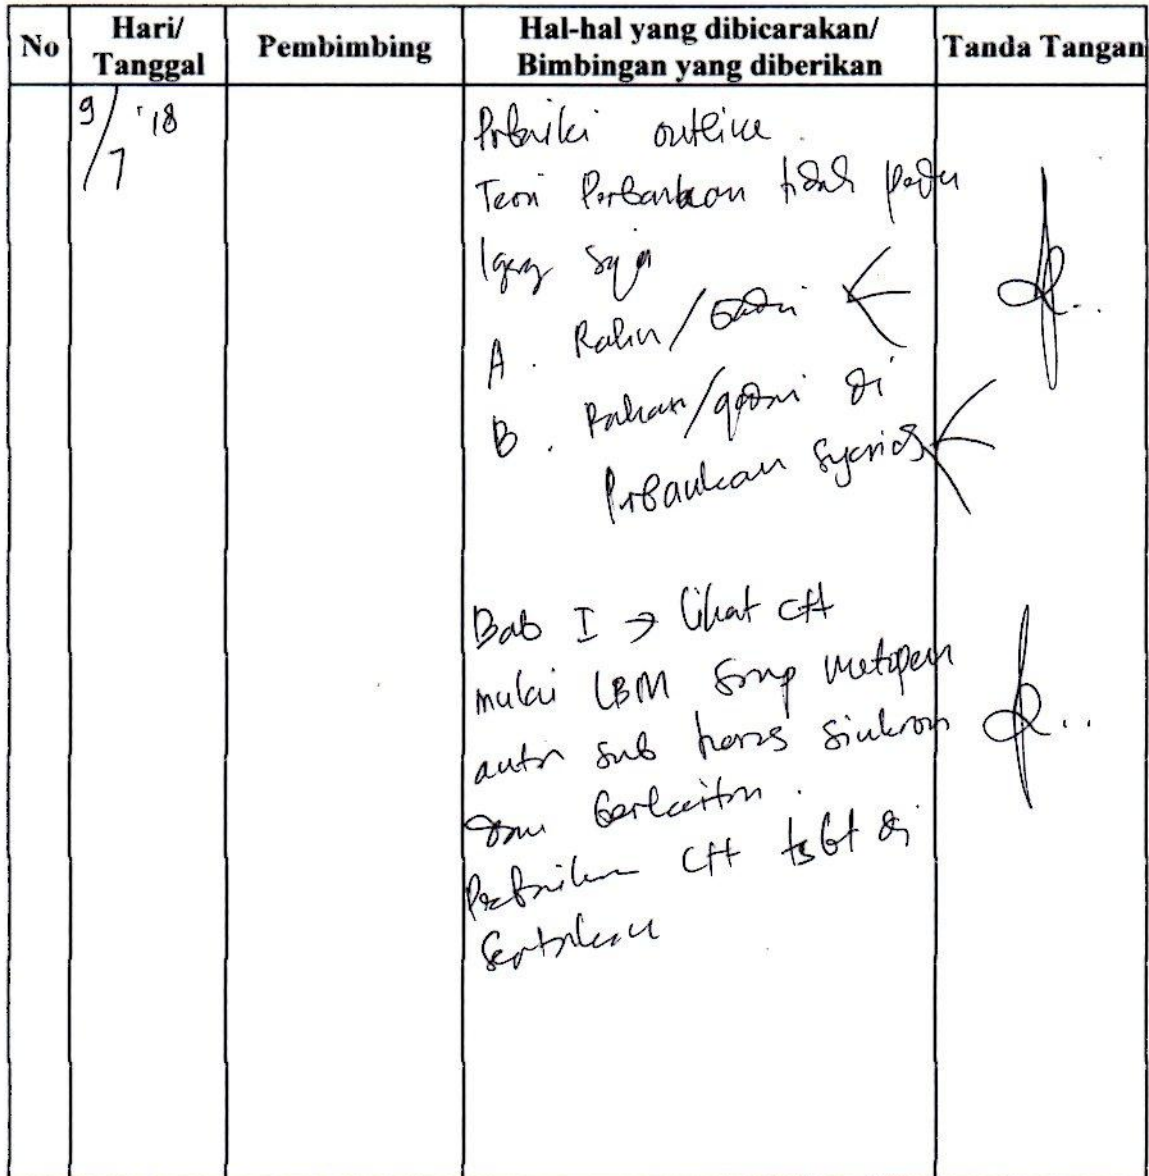 No
Hari/
Tanggal
Pembimbing
Hal-hal yang dibicarakan/
Bimbingan yang diberikan
Tanda Tangan
9/7 '18
outline
Teori Perbankan tidak perlu
saja
A. Rahn/Gadai
B. Rahan/gadai di
Perbankan Syariah
Bab I → lihat Ctt
mulai LBM metopen
sub harus sinkron
dan berkaitan.
Ctt tsbt di